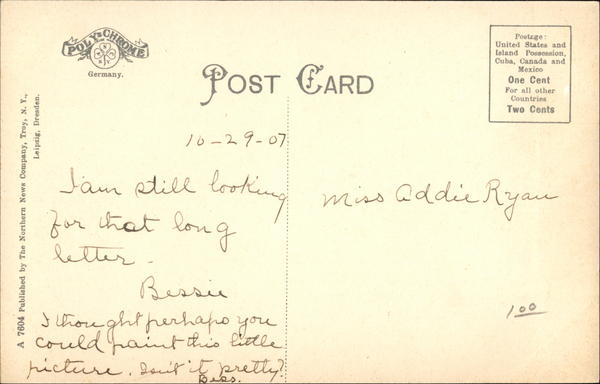 POLY-CHROME
Germany.
POST CARD
Postage:
United States and
Island Possession,
Cuba, Canada and
Mexico
One Cent
For all other
Countries
Two Cents
A 7604 Published by The Northern News Company, Troy, N. Y.,
Leipzig, Dresden.
10-29-07
I am still looking
for that long
letter.
Bessie
I thought perhaps you
could paint this little
picture. Isn't it pretty?
Bess.
Miss Addie Ryan
1.00